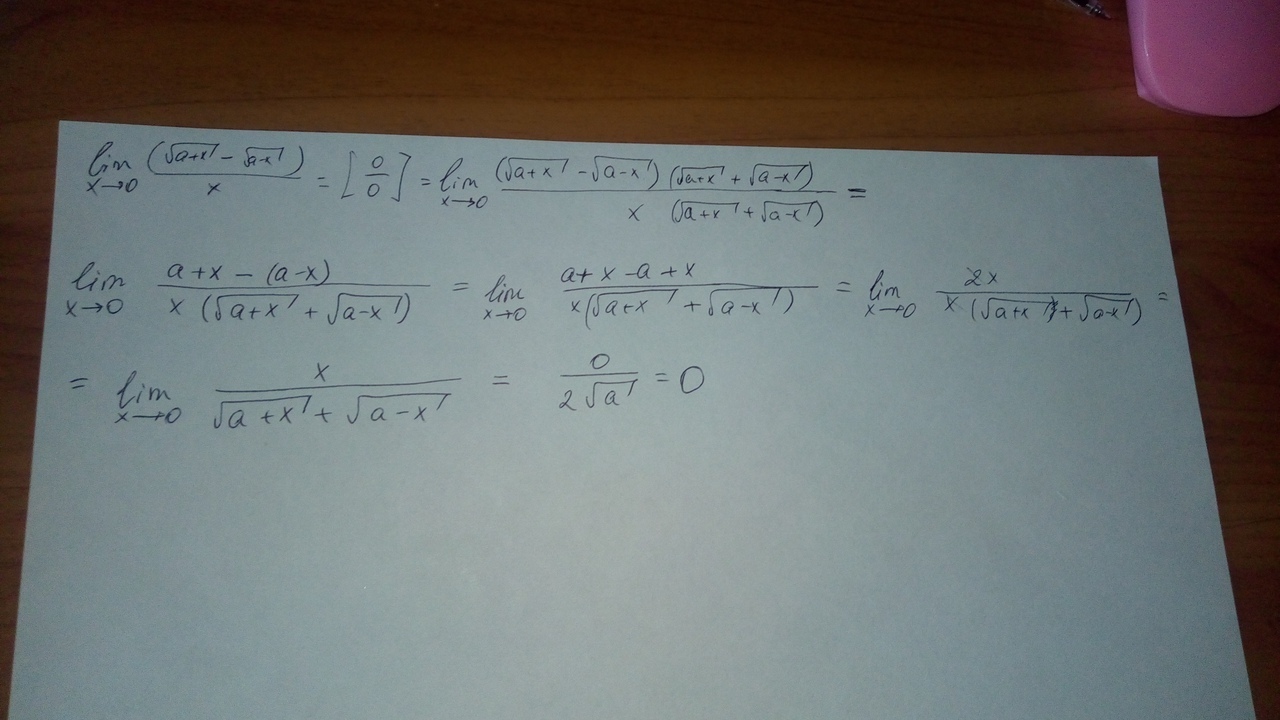 lim x→0 (√(a+x) - √(a-x)) / x = [0/0] = lim x→0 (√(a+x) - √(a-x)) (√(a+x) + √(a-x)) / x (√(a+x) + √(a-x)) =
lim x→0 a+x - (a-x) / x (√(a+x) + √(a-x)) = lim x→0 a+x-a+x / x(√(a+x) + √(a-x)) = lim x→0 2x / x (√(a+x) + √(a-x)) =
= lim x→0 x / √(a+x) + √(a-x) = 0 / 2√a = 0